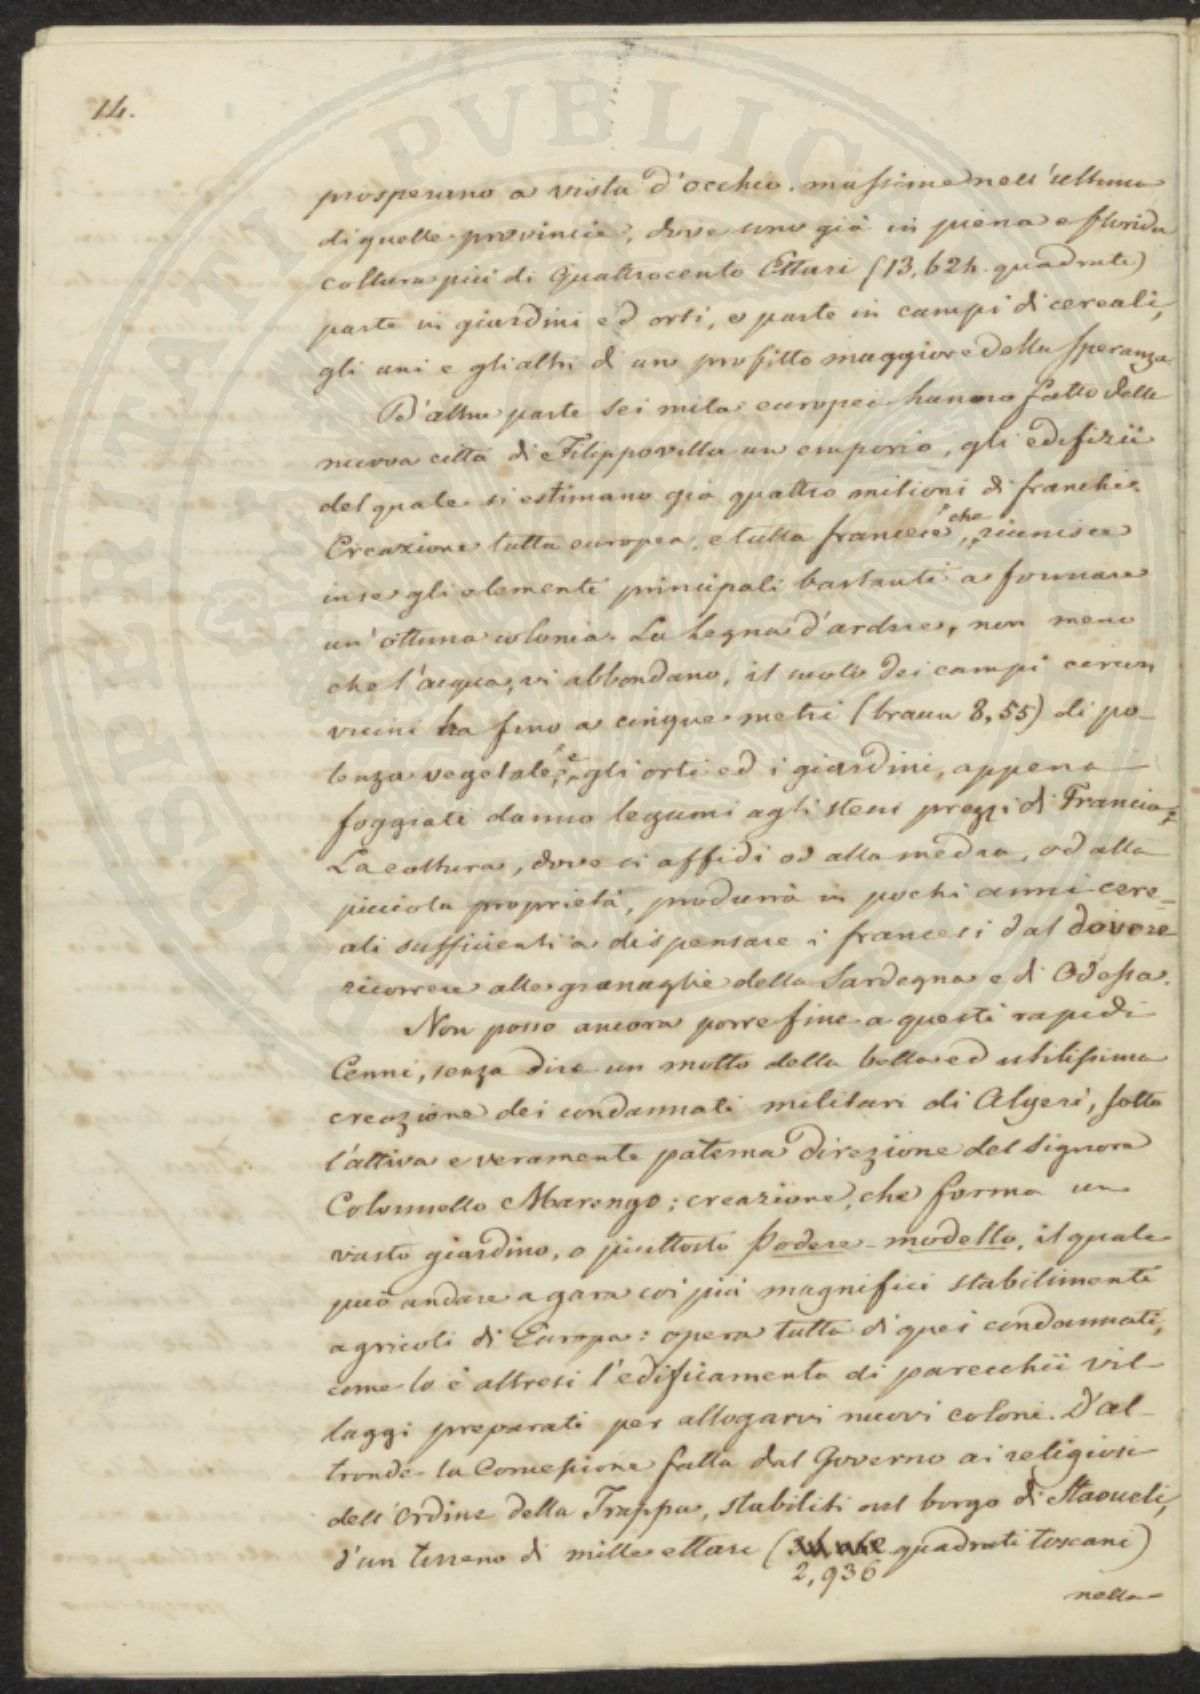 14.
prosperano a vista d'occhio, massime nell'ultima
di quelle provincie, dove sono già in piena e florida
coltura più di Quattrocento Ettari (13,624 quadrati)
parte in giardini ed orti, e parte in campi di cereali,
gli uni e gli altri d'un profitto maggiore della speranza.
D'altra parte sei mila europei hanno fatto della
nuova città di Filippovilla un emporio, gli edifizii
del quale si estimano già quattro milioni di franchi.
Creazione tutta europea, e tutta francese, che riunisce
in se gli elementi principali bastanti a formare
un'ottima colonia. La legna d'ardere, non meno
che l'acqua, vi abbondano, il suolo dei campi circon
vicini ha fino a cinque metri (braccia 8,55) di po-
tenza vegetale; e gli orti ed i giardini, appena
foggiati danno legumi agli stessi prezzi di Francia.
La coltura, dove si affidi od alla media, od alla
piccola proprietà, produrrà in pochi anni cere-
ali sufficienti a dispensare i francesi dal dovere
ricorrere alle granaglie della Sardegna e di Odessa.
Non posso ancora porre fine a questi rapidi
Cenni, senza dire un motto della bella ed utilissima
creazione dei condannati militari di Algeri, sotto
l'attiva e veramente paterna direzione del Signore
Colonnello Marengo; creazione, che forma un
vasto giardino, o piuttosto Podere-modello, il quale
può andare a gara coi più magnifici stabilimenti
agricoli di Europa: opera tutta di quei condannati,
come lo è altresì l'edificamento di parecchii vil-
laggi preparati per allogarvi nuovi coloni. D'al-
tronde la Concessione fatta dal Governo ai religiosi
dell'Ordine della Trappa, stabiliti nel borgo di Staoueli,
d'un terreno di mille ettari ( quadrati toscani)
2,936
nella
PROSPERITATI PVBLICAE